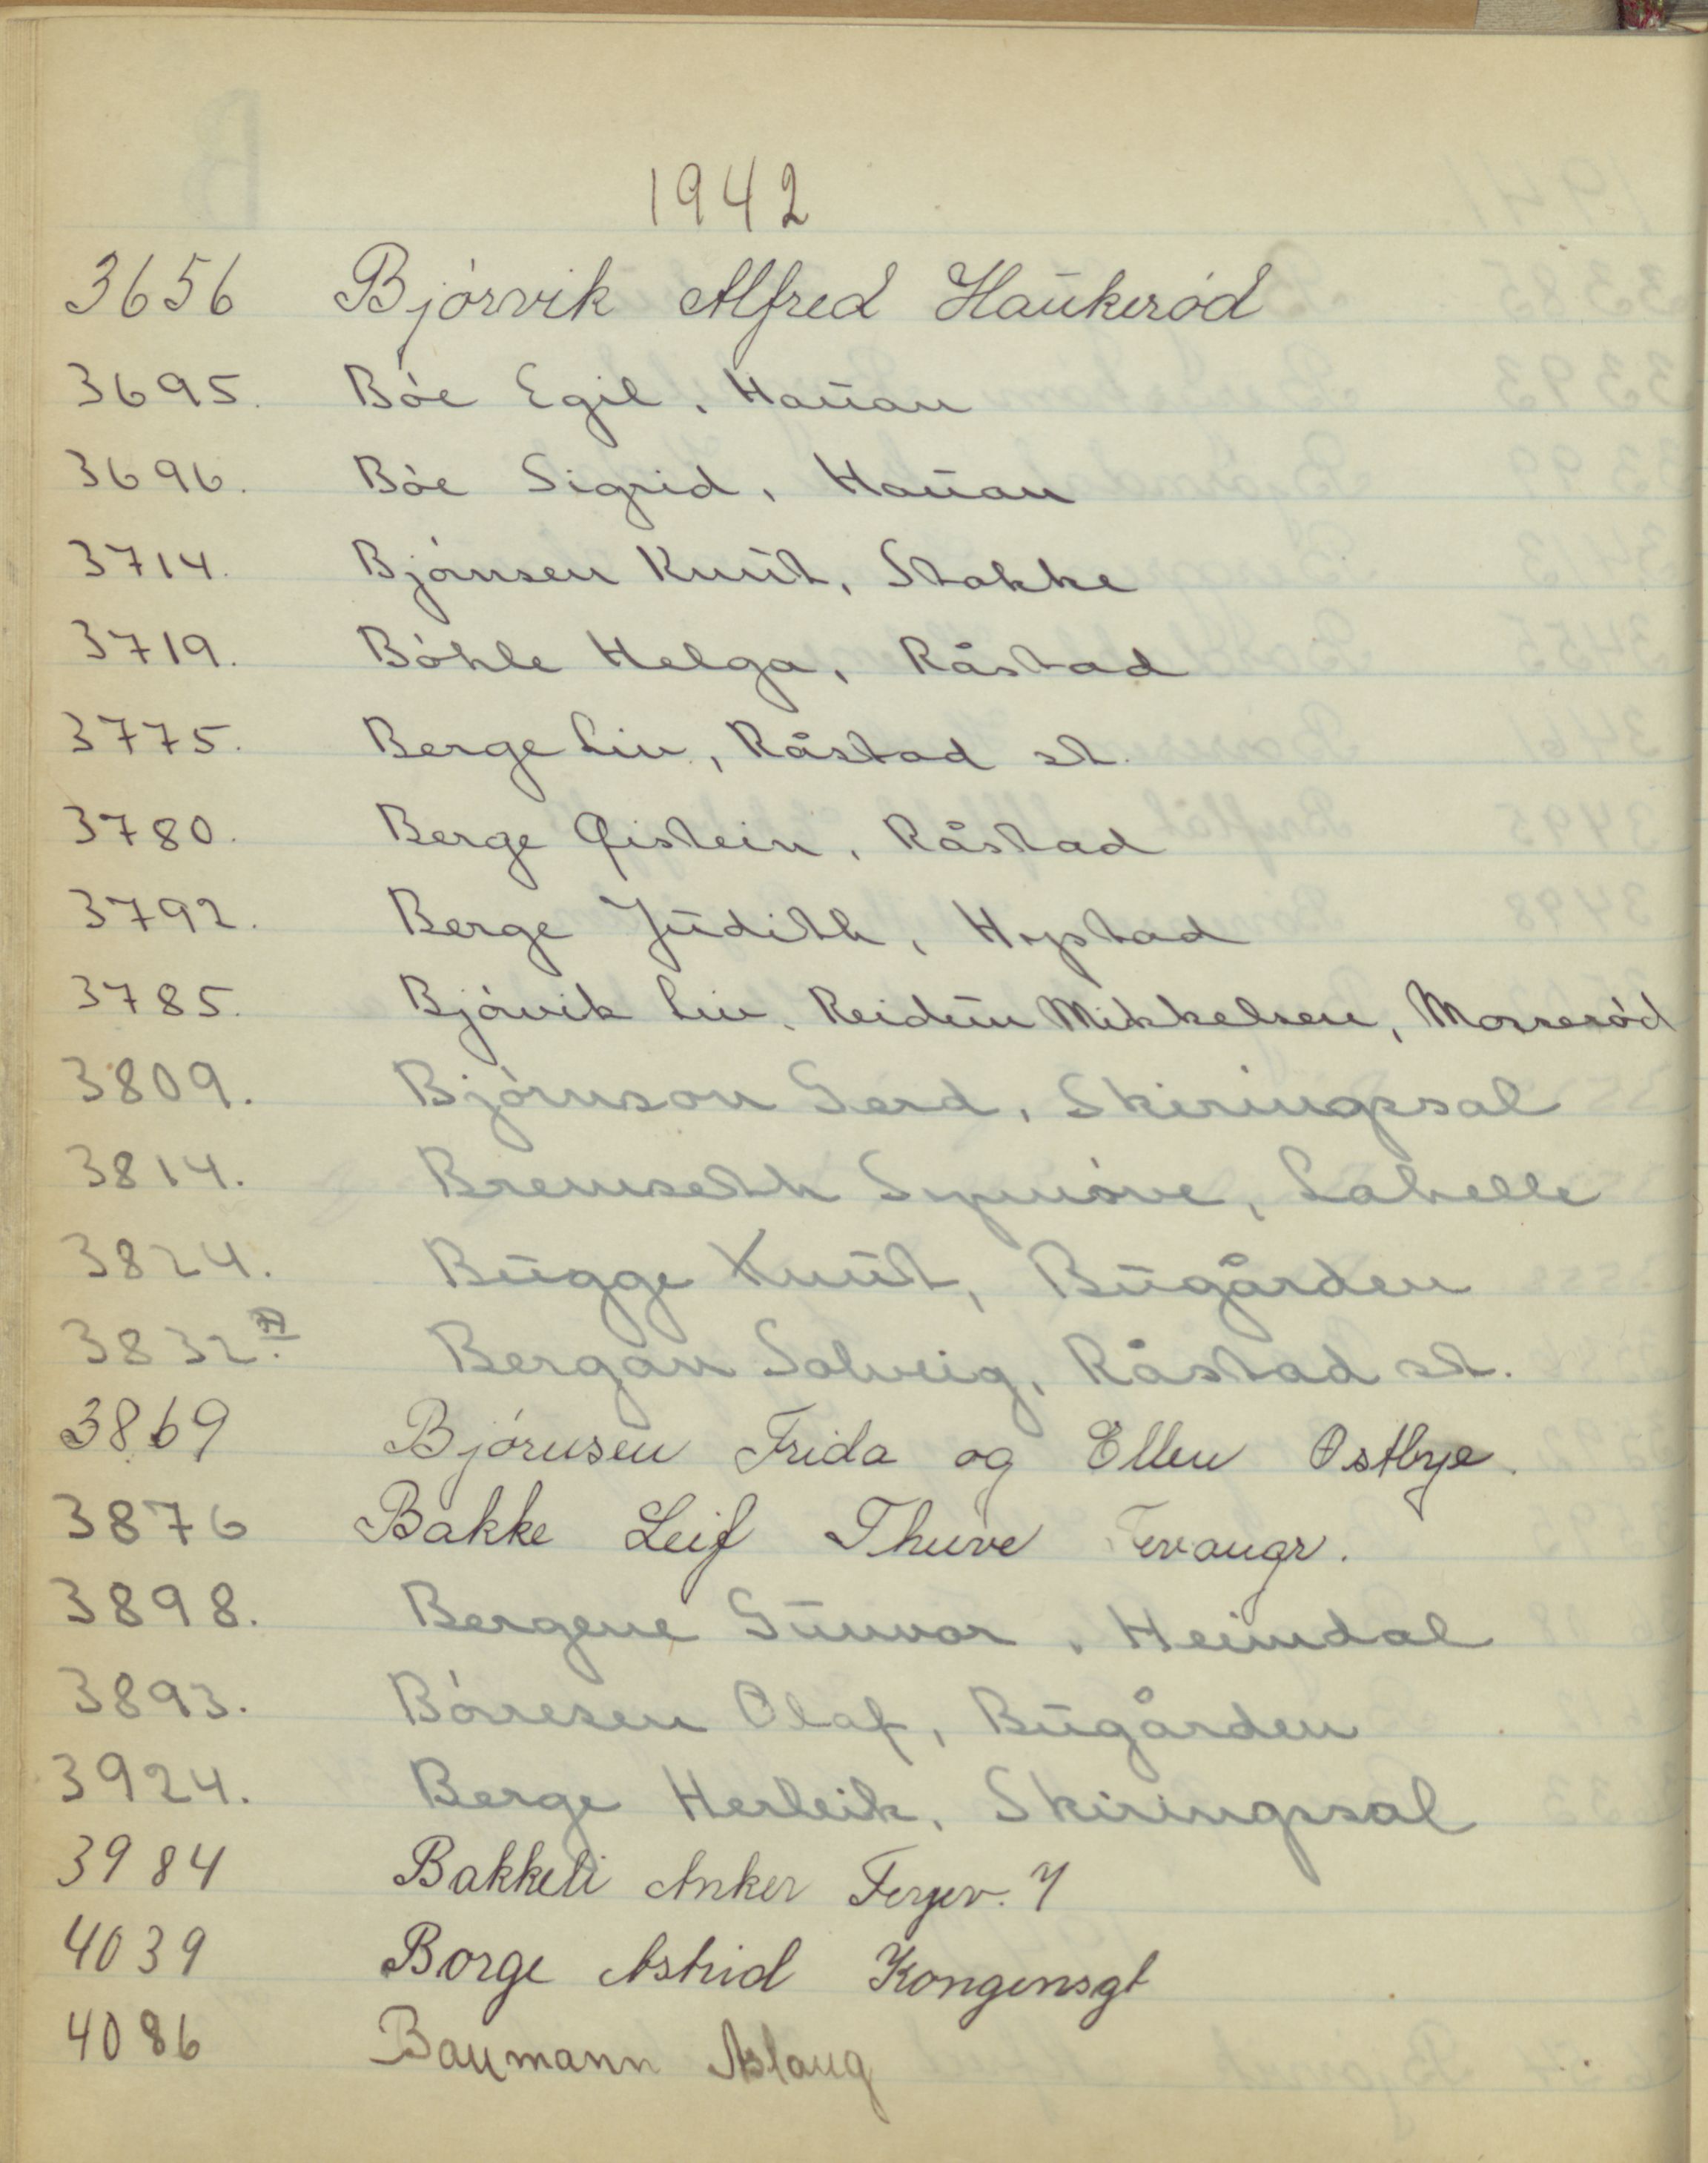 1942
3656 Bjórvik Alfred Haukeród
3695. Bóe Egil, Hauan
3696. Bóe Sigrid, Hauan
3714. Bjórnsen Knut, Stokke
3719. Bóhle Helga, Råstad
3775. Berge Liv, Råstad st.
3780. Berge Øistein, Råstad
3792. Berge Judith, Hystad
3785. Bjórvik Liv, Reidun Mikkelsen, Mosseród
3809. Bjórnson Gerd, Skiringssal
3814. Bremseth Synnóve, Lahelle
3824. Bugge Knut, Bugården
3832.A Bergan Solveig, Råstad st.
3869 Bjórnsen Frida og Ellen Østbye.
3876 Bakke Leif Thuve
3898. Bergene Gunvor, Heimdal
3893. Bórresen Olaf, Bugården
3924. Berge Herleik, Skiringssal
3984 Bakkeli Anker Ferjev. 7
4039 Borge Astrid Kongensgt
4086 Baumann Aslaug